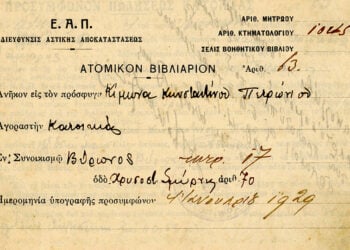 Ε. Α. Π.
ΔΙΕΥΘΥΝΣΙΣ ΑΣΤΙΚΗΣ ΑΠΟΚΑΤΑΣΤΑΣΕΩΣ
ΑΡΙΘ. ΜΗΤΡΩΟΥ
ΑΡΙΘ. ΚΤΗΜΑΤΟΛΟΓΙΟΥ
ΣΕΛΙΣ ΒΟΗΘΗΤΙΚΟΥ ΒΙΒΛΙΟΥ
ΑΤΟΜΙΚΟΝ ΒΙΒΛΙΑΡΙΟΝ Ἀριθ.
Ἀνῆκον εἰς τὸν πρόσφυγα Κίμωνα Κωνσταντίνου
Ἀγοραστὴν Κατοικίας
Ἐν Συνοικισμῷ Βύρωνος 17
ὁδὸς Σμύρνης ἀριθ 70
Ἡμερομηνία ὑπογραφῆς προσυμφώνων 1929